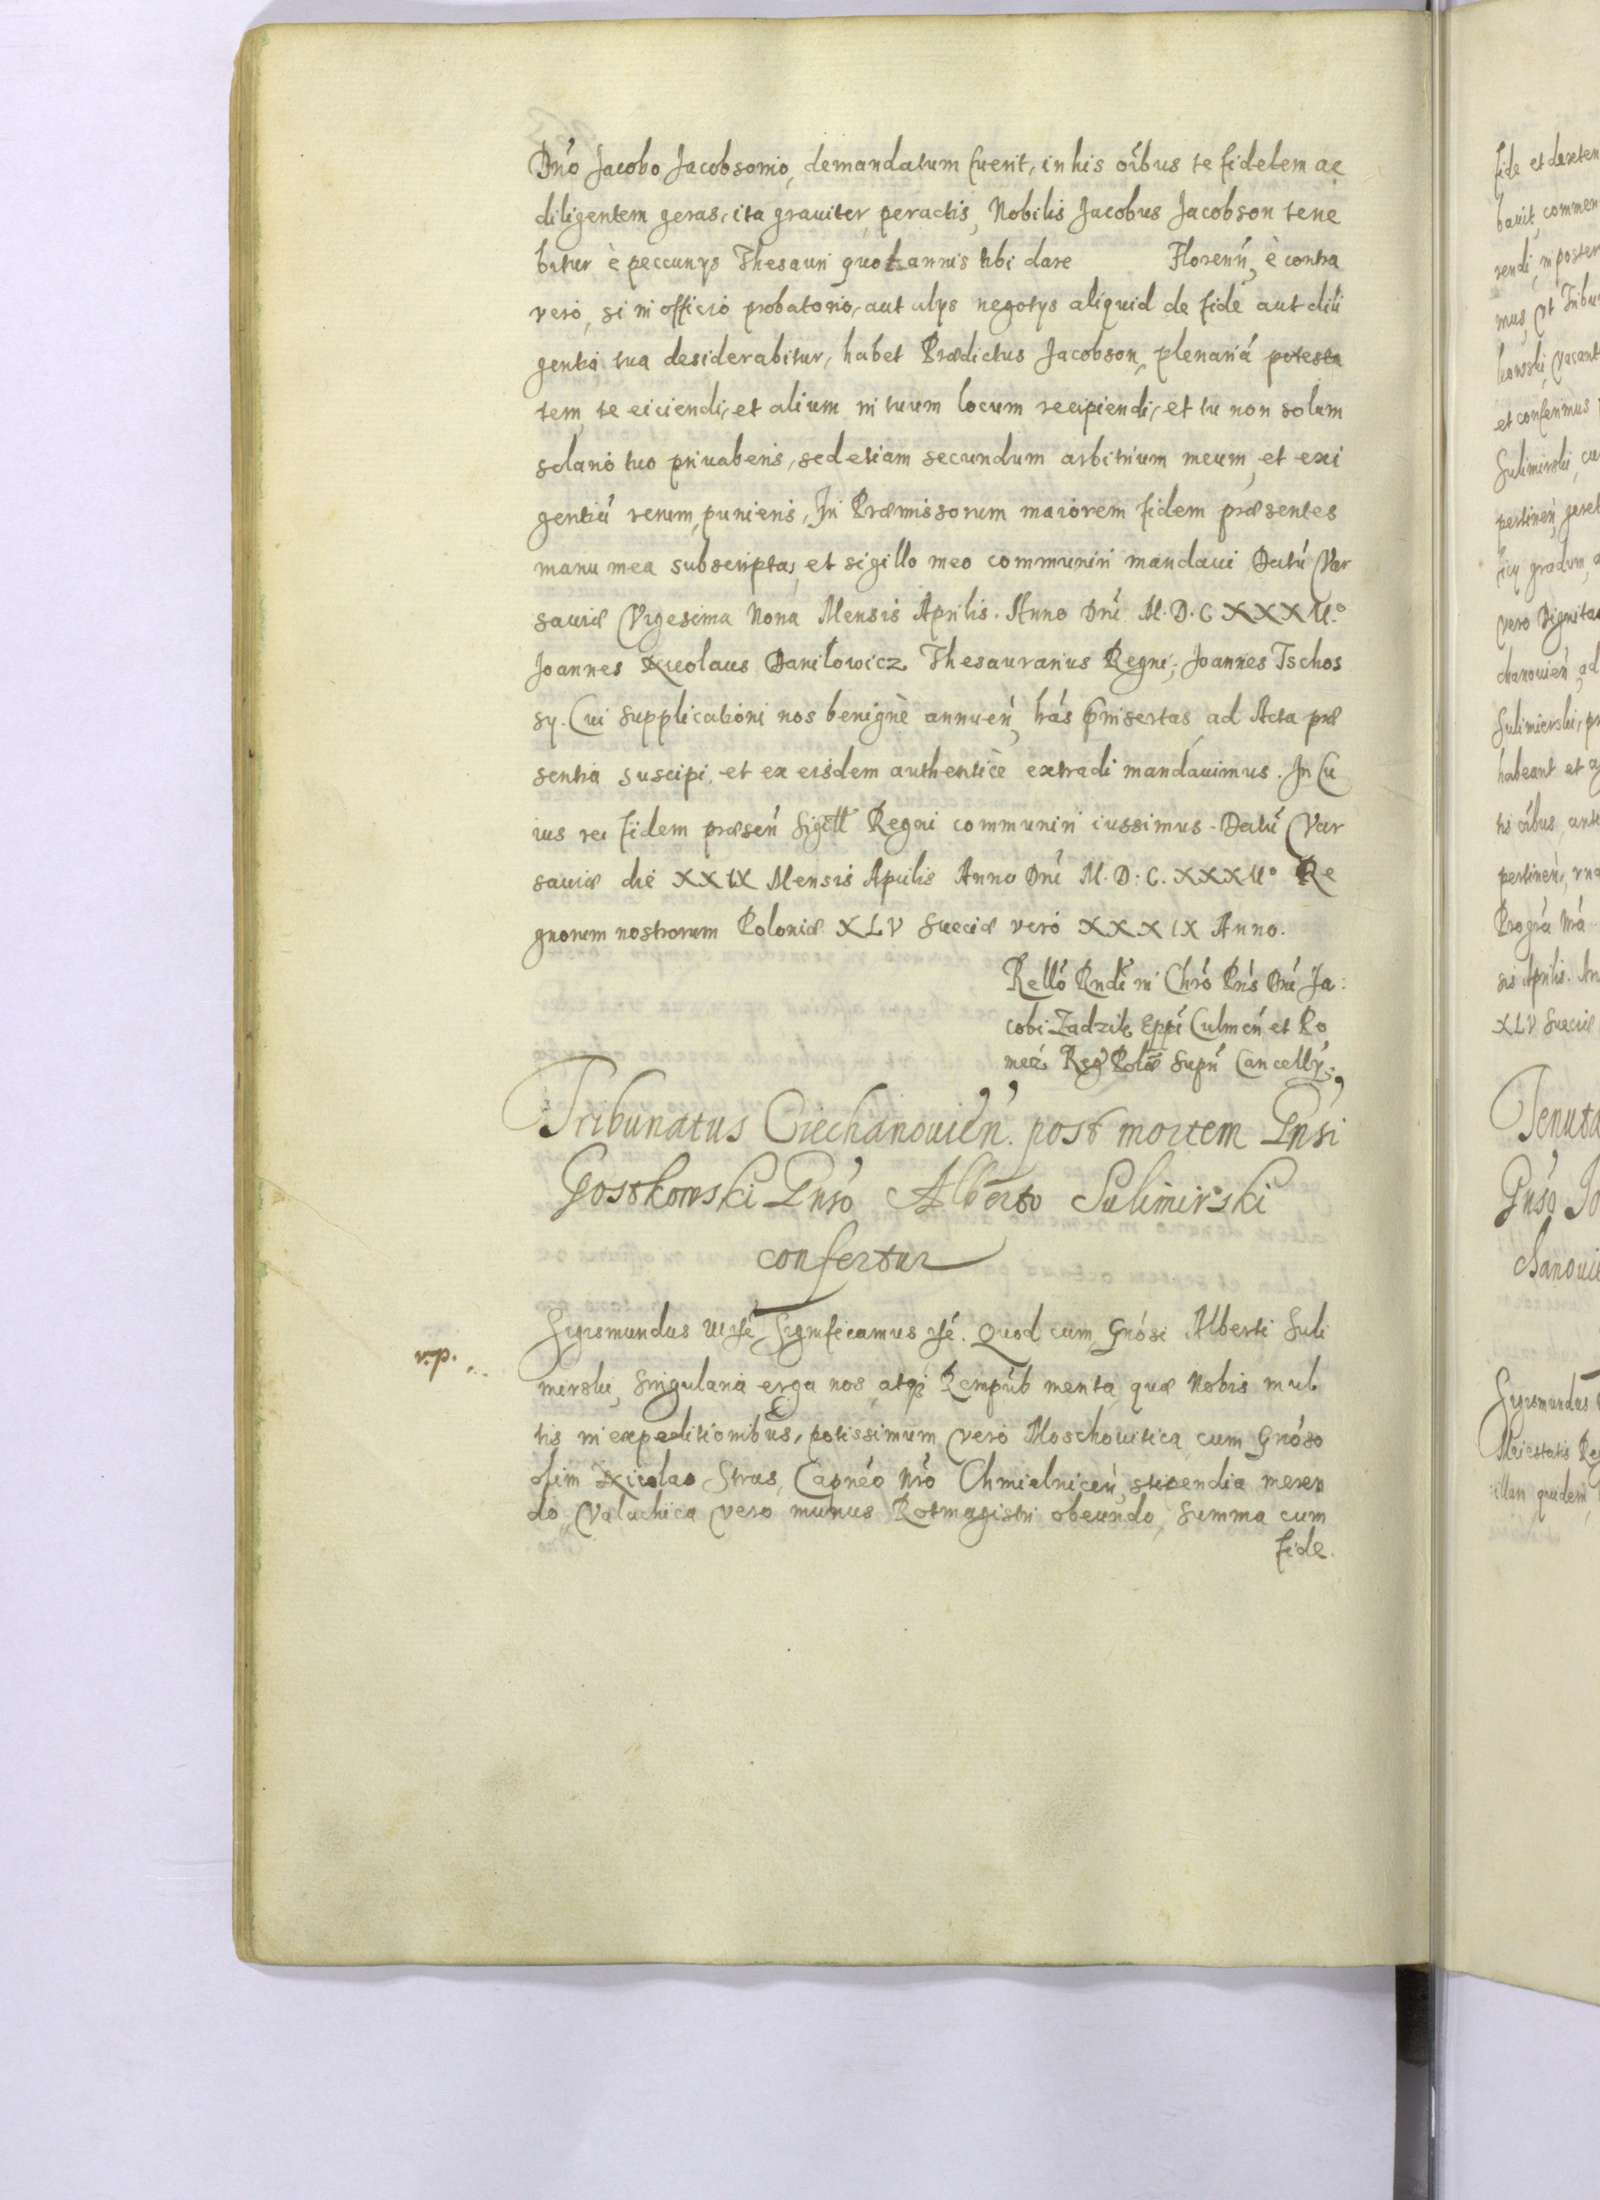 Dńo Jacobo Jacobsonio, demandatum fuerit, in his oĩbus te fidelem ac
diligentem geras, ita grauiter peractis, Nobilis Jacobus Jacobson tene
bitur è peccunÿs Thesauri quotannis tibi dare Florenń, è contra
vero, si in officio probatorio, aut alÿs negotÿs aliquid de fide aut dili
gentia tua desiderabitur, habet Prædictus Jacobson, plenariá potesta
tem, te eiciendi, et alium in tuum locum recipiendi, et tu non solum
solario tuo priuaberis, sed etiam secundum arbitrium meum, et exi
gentiú rerum, punieris, In Præmissorum maiorem fidem præsentes
manu mea subscriptas, et sigillo meo communiri mandaui Datú Var
sauiæ Vigesima Nona Mensis Aprilis. Anno Dńi M.D.C XXXII.º
Joannes Nicolaus Daniłowicz Thesaurarius Regni, Joannes Tschos
sÿ. Cui supplicationi nos benignè annueń, hás insertas, ad Acta præ
sentia suscipi, et ex eisdem authenticè extradi mandauimus. In Cu
ius rei fidem præseń Sigill Regni communiri iussimus. Datú Var
sauiæ die XXIX Mensis Aprilis Anno Dńi M.D.C. XXXIIº Re
gnorum nostrorum Poloniæ XLV Sueciæ vero XXXIX Anno.
Relló Rndi in Chró Pris Dńi Ja:
cobi Zadzik Eppi Culmeń et Po
mez: Reg Polæ Supń Cancellÿ.
Tribunatus Ciechanouień. post mortem Gnsi
Gostkowski Gnso Alberto Sulimirski
confertur
Sigismundus III ré Significamus ré. Quod cum Gnósi Alberti Suli
v.p.
mirski, singularia erga nos, atqi Rempub merita, quæ Nobis mul
tis in expeditionibus, potissimum vero Moschouitica cum Gnóso
olim Nicolao Strus, Capnéo Nro Chmielniceń, stipendia meren
do, Valachica vero munus Rotmagistri obeundo, summa cum
fide.
fide et dexter
bauit, commen
rendi, in poster
mus, vt Tribu
kowski, vacant
et conferimus
Sulimirski, cu
pertineń, geret
gradum, a
vero Dignita
chanouień, ad
Sulimierski, pr
habeant et a
tis oĩbus, ante
pertineń, vna
sis Aprilis. An
XLV Sueciæ
Tenuta
Gnso Jo
chanouie
Sigismundus
Maiestatis Re
illan quidem